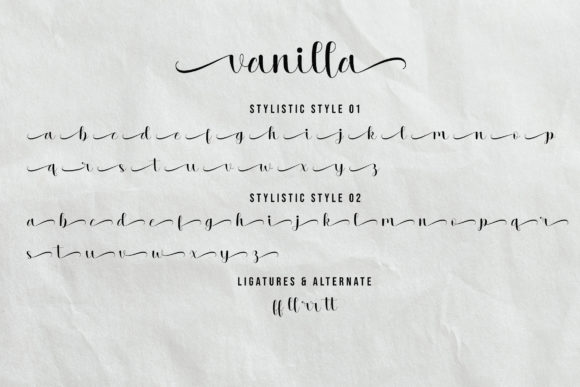 vanilla
STYLISTIC STYLE 01
a b c d e f g h i j k l m n o p
q r s t u v w x y z
STYLISTIC STYLE 02
a b c d e f g h i j k l m n o p q r
s t u v w x y z
LIGATURES & ALTERNATE
ff ll rr tt